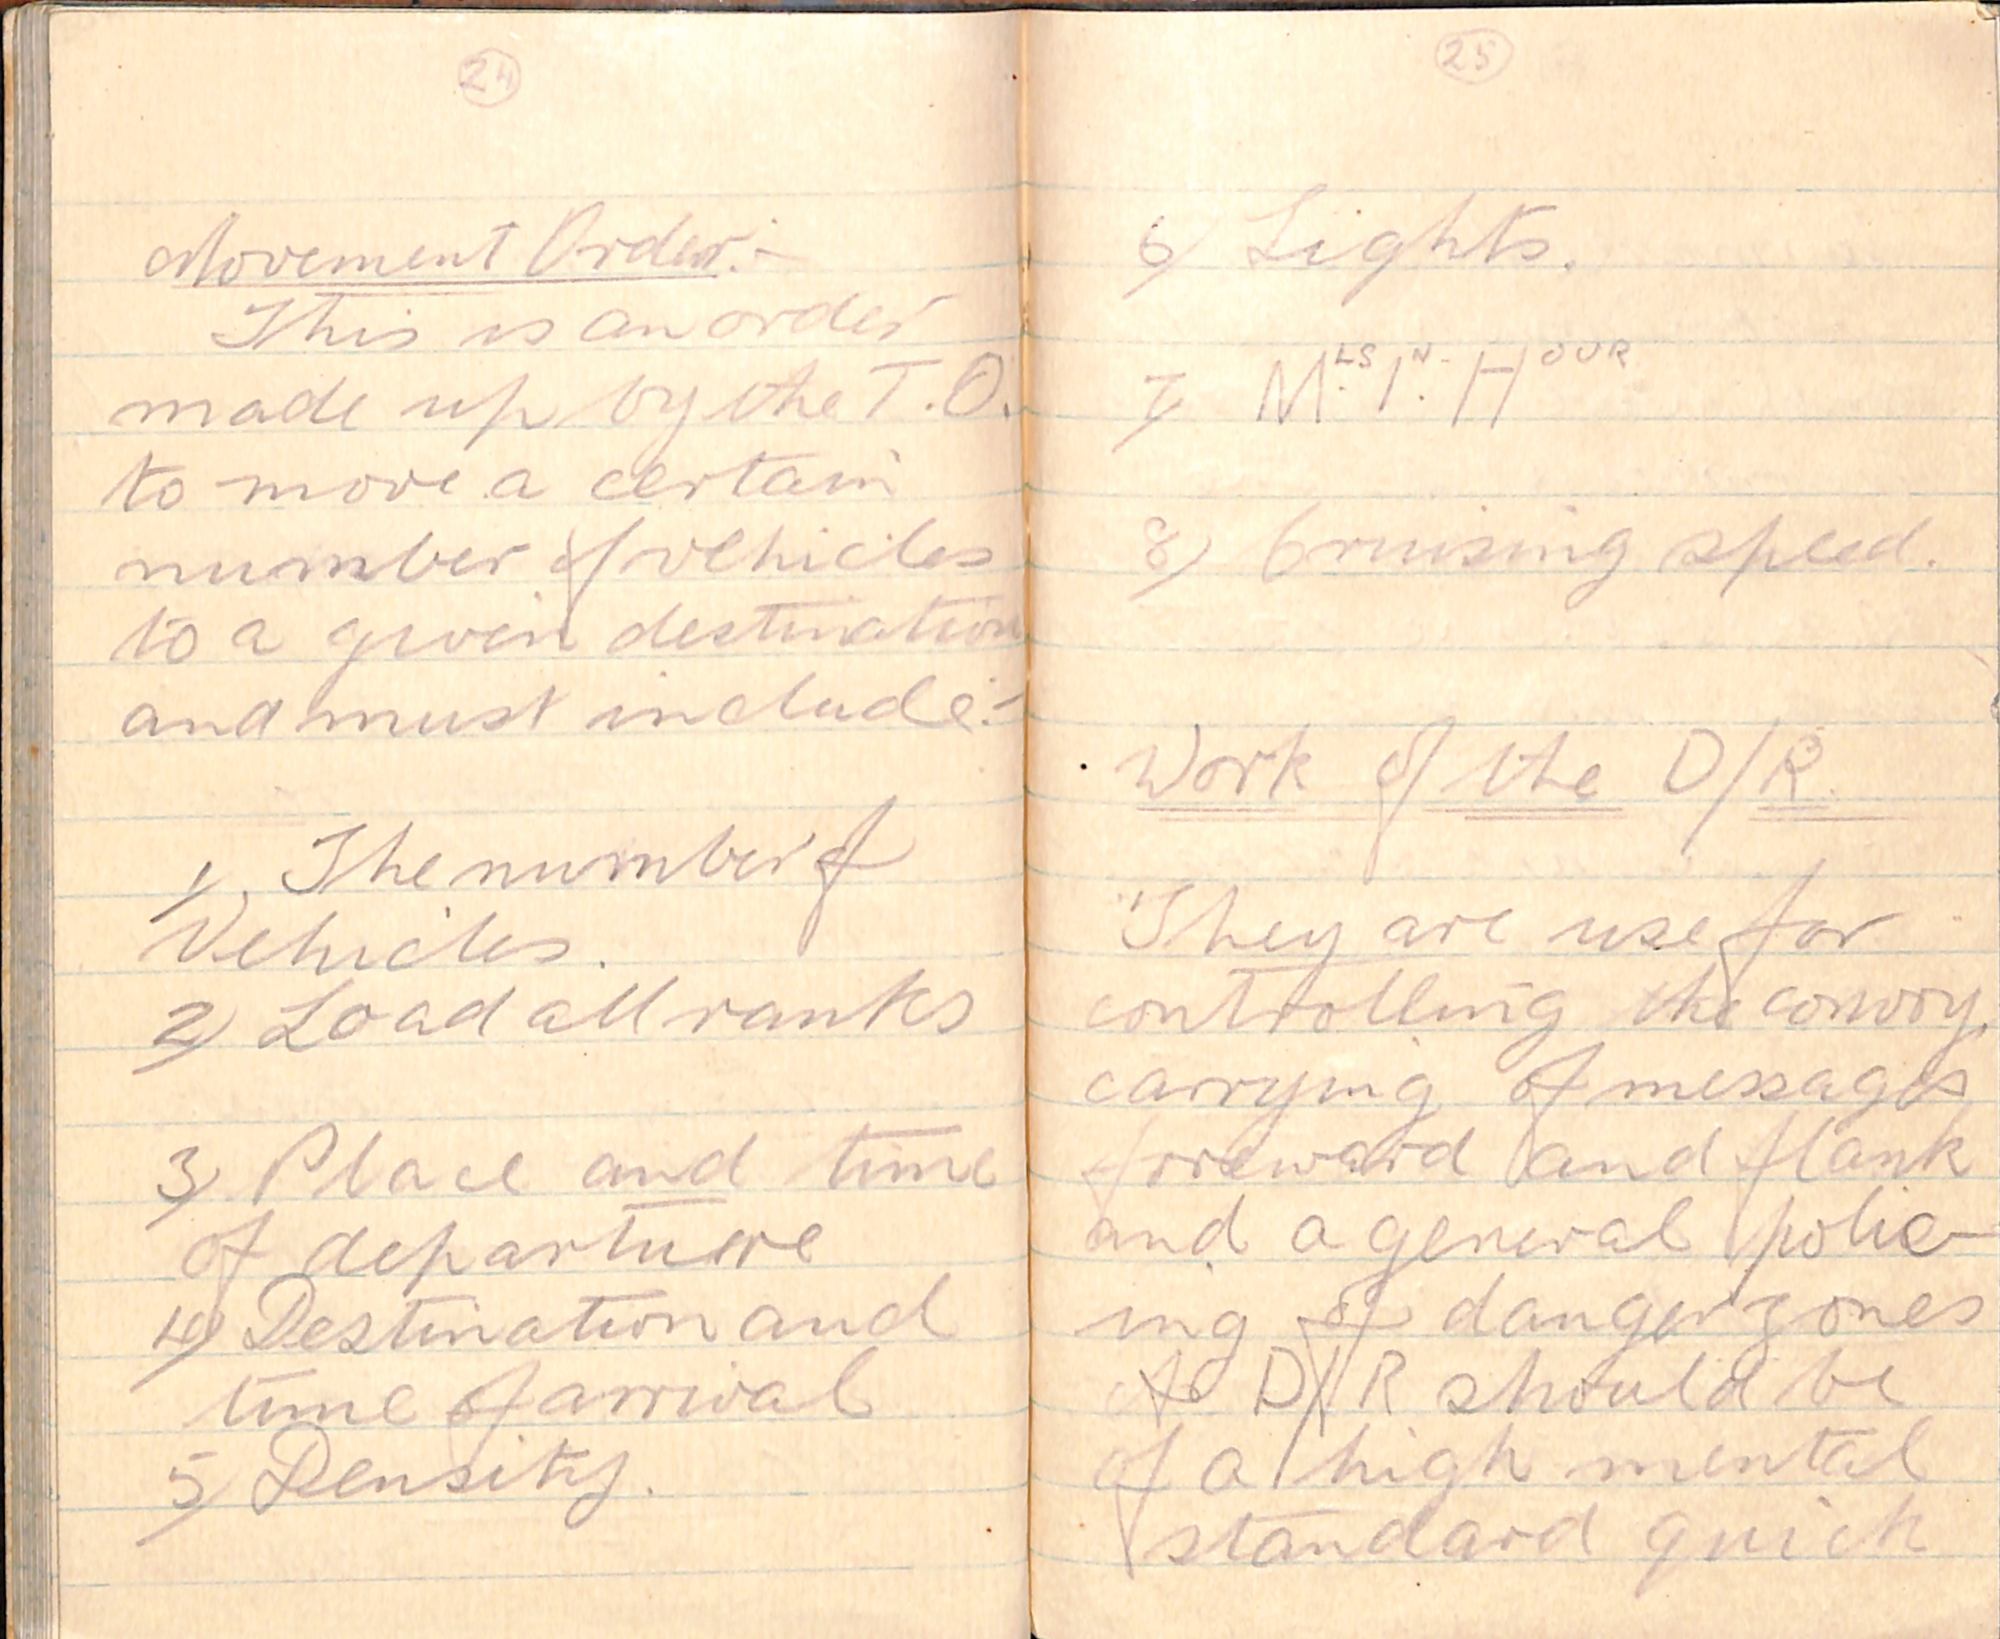 24
Movement Order:-
This is an order
made up by the T.O.
to move a certain
number of vehicles
to a given destination
and must include:-
1) The number of
Vehicles.
2) Load all ranks
3) Place and time
of departure
4) Destination and
time of arrival
5) Density.
25
6) Lights.
7) M.LS I.N. HOUR
8) Cruising speed.
Work of the D/R.
They are use for
controlling the convoy,
carrying of messages
foreward and flank
and a general polic-
ing of danger zones
A D/R should be
of a high mental
standard quick